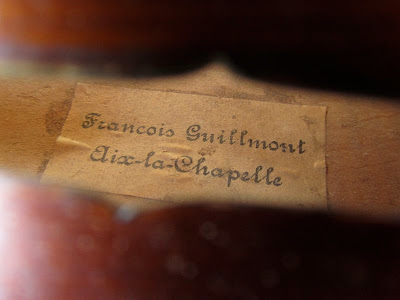 Francois Guillmont
Aix-la-Chapelle